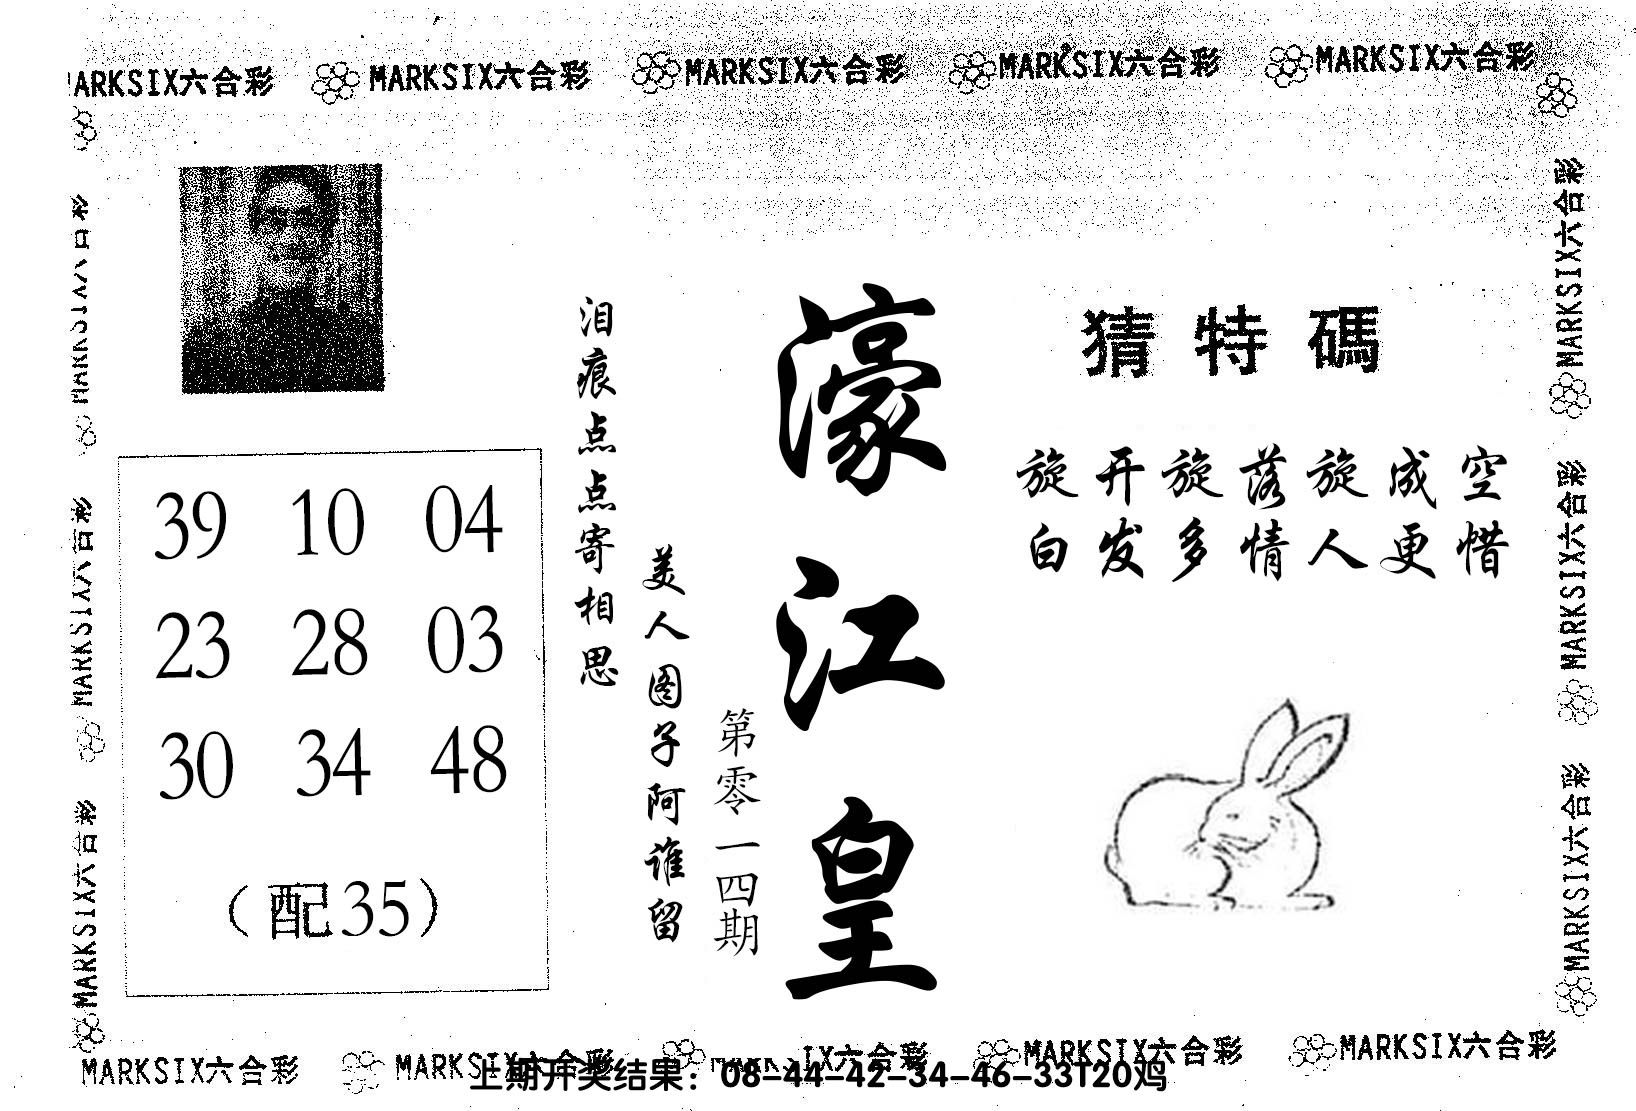 MARKSIX六合彩 MARKSIX六合彩 MARKSIX六合彩 MARKSIX六合彩 MARKSIX六合彩
猜特碼
旋开旋落旋成空
白发多情人更惜
濠江皇
第零一四期
美人图子阿谁留
泪痕点点寄相思
39 10 04
23 28 03
30 34 48
（配35）
MARKSIX六合彩
MARKSIX六合彩
MARKSIX六合彩
MARKSIX六合彩
MARKSIX六合彩
MARKSIX六合彩
MARKSIX六合彩 MARKSIX六合彩 IX六合彩 MARKSIX六合彩 MARKSIX六合彩
上期开奖结果：08-44-42-34-46-33T20鸡